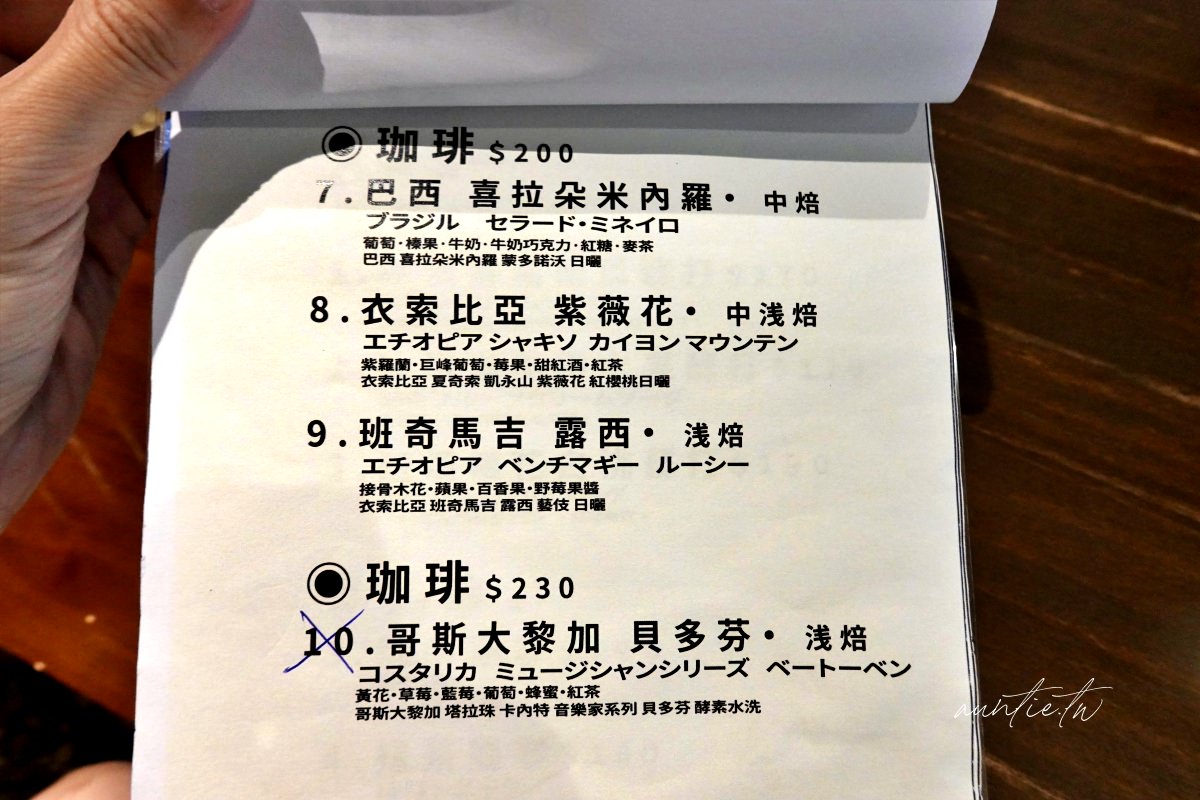 ◉ 珈琲 $200
7.巴西 喜拉朵米內羅• 中焙
ブラジル セラード・ミネイロ
葡萄·榛果·牛奶·牛奶巧克力·紅糖·麥茶
巴西 喜拉朵米內羅 蒙多諾沃 日曬
8.衣索比亞 紫薇花• 中浅焙
エチオピア シャキソ カイヨン マウンテン
紫羅蘭·巨峰葡萄·莓果·甜紅酒·紅茶
衣索比亞 夏奇索 凱永山 紫薇花 紅櫻桃日曬
9.班奇馬吉 露西• 浅焙
エチオピア ベンチマギー ルーシー
接骨木花·蘋果·百香果·野莓果醬
衣索比亞 班奇馬吉 露西 藝伎 日曬
◉ 珈琲 $230
10.哥斯大黎加 貝多芬• 浅焙
コスタリカ ミュージシャンシリーズ ベートーベン
黃花·草莓·藍莓·葡萄·蜂蜜·紅茶
哥斯大黎加 塔拉珠 卡內特 音樂家系列 貝多芬 酵素水洗
auntie.tw